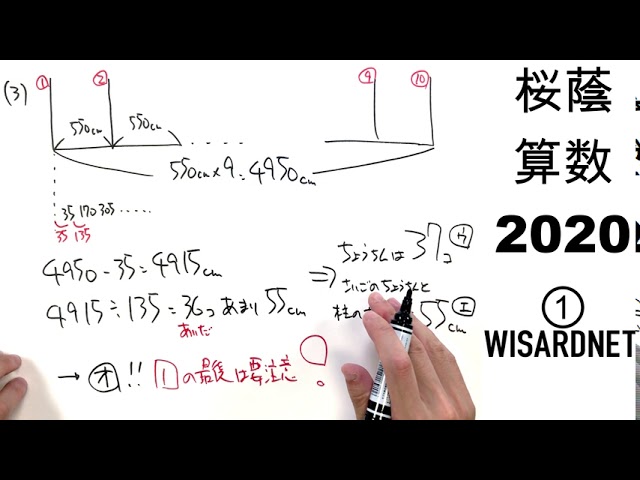 (3)
① ② ⑨ ⑩
550cm 550cm ‥‥
550cm×9=4950cm
35 170 305 ‥‥‥
35 135
4950-35=4915cm
4915÷135=36コあまり55cm
あいだ
→ オ!! 1の最後は要注意!
ちょうちんは37コ ウ
⇒ さいごのちょうちんと
柱の 55cm エ
桜蔭
算数
2020
①
WISARDNET